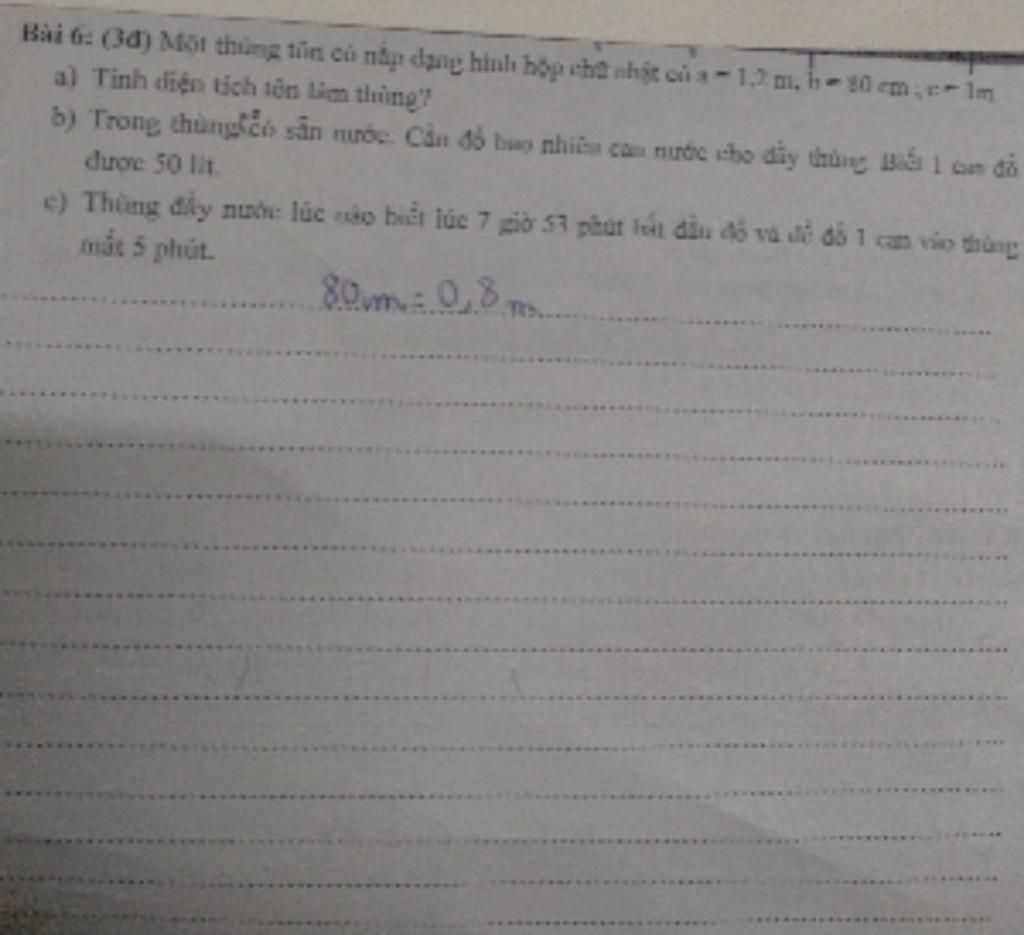 Bài 6: (3đ) Một thùng tôn có nắp dạng hình hộp chữ nhật có a = 1,2 m, b = 80 cm ; c = 1m
a) Tính diện tích tôn làm thùng?
b) Trong thùng có sẵn nước. Cần đổ bao nhiêu can nước cho đầy thùng. Biết 1 can đổ
được 50 lít.
c) Thùng đầy nước lúc nào biết lúc 7 giờ 53 phút bắt đầu đổ và để đổ 1 can vào thùng
mất 5 phút.
80cm = 0,8 m